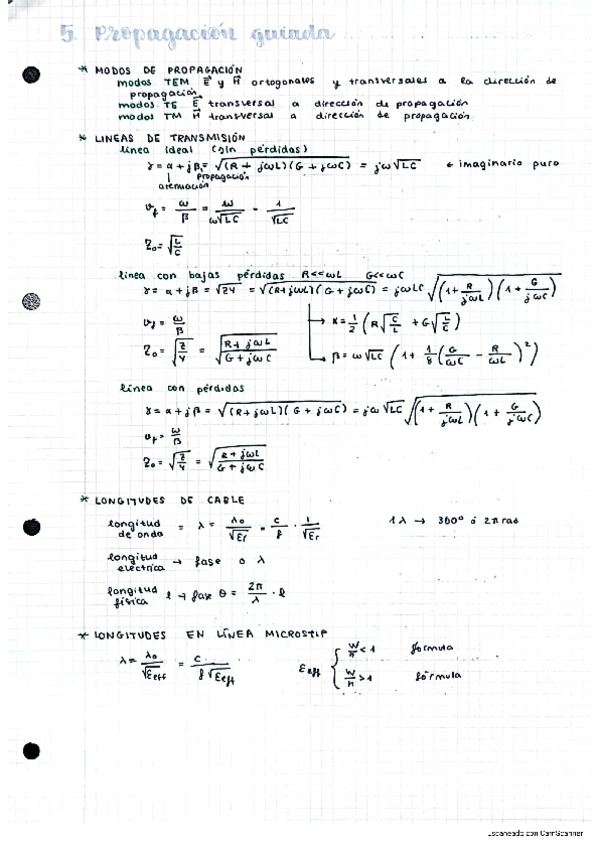 5. Propagación guiada
* MODOS DE PROPAGACIÓN
modos TEM E⃗ y H⃗ ortogonales y transversales a la dirección de
propagación
modos TE E⃗ transversal a dirección de propagación
modos TM H⃗ transversal a dirección de propagación.
* LINEAS DE TRANSMISIÓN
línea ideal (sin pérdidas)
γ = α + jβ = √((R + jωL)(G + jωC)) = jω√LC ← imaginario puro
propagación
atenuación
v_f = ω/β = ω/(ω√LC) = 1/√LC
Z₀ = √(L/C)
línea con bajas pérdidas R<<ωL G<<ωC
γ = α + jβ = √ZY = √((R+jωL)(G + jωC)) = jωLC √((1 + R/jωL)(1 + G/jωC))
v_f = ω/β → α = 1/2 (R√(C/L) + G√(L/C))
Z₀ = √(Z/Y) = √((R + jωL)/(G + jωC)) → β = ω√LC (1 + 1/8 (G/ωC − R/ωL)²)
línea con pérdidas
γ = α + jβ = √((R + jωL)(G + jωC)) = jω√LC √((1 + R/jωL)(1 + G/jωC))
v_f = ω/β
Z₀ = √(Z/Y) = √((R + jωL)/(G + jωC))
* LONGITUDES DE CABLE
longitud de onda = λ = λ₀/√εr = c/f · 1/√εr 1λ → 360° ó 2π rad
longitud eléctrica → fase o λ
longitud física l → fase θ = 2π/λ · l
* LONGITUDES EN LÍNEA MICROSTIP
λ = λ₀/√εeff = c/(f√εeff) εeff { W/h < 1 fórmula
W/h > 1 fórmula
Escaneado con CamScanner